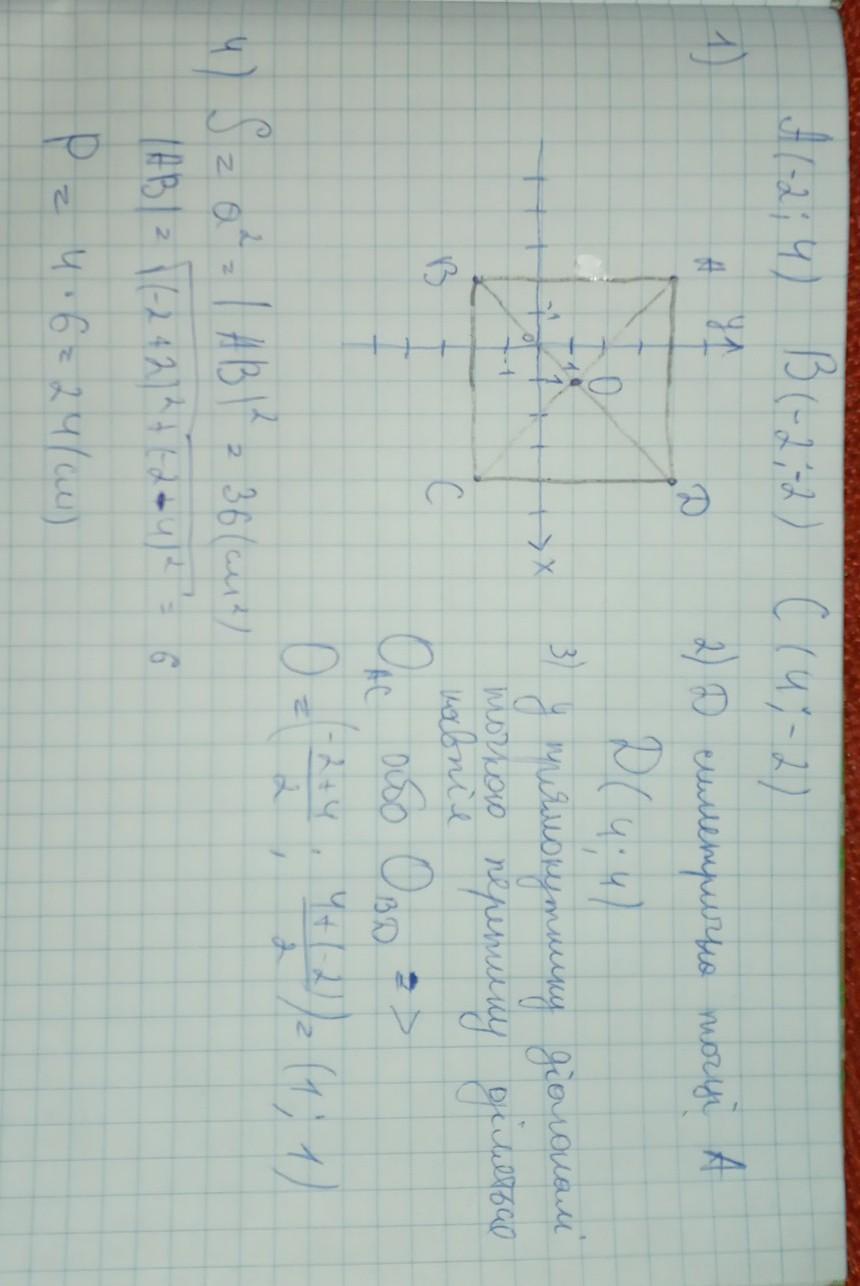 A(-2; 4) B(-2; -2) C(4; -2)
1)
A
y
D
O
-1
o
1
1
-1
x
B
C
2) D симетрична точці A
D(4; 4)
3) У прямокутнику діагоналі
точкою перетину діляться
навпіл
O_AC або O_BD =>
O = (-2+4/2; 4+(-2)/2) = (1; 1)
4) S = a² = |AB|² = 36(см²)
|AB| = √(-2+2)²+(-2-4)² = 6
P = 4·6=24(см)